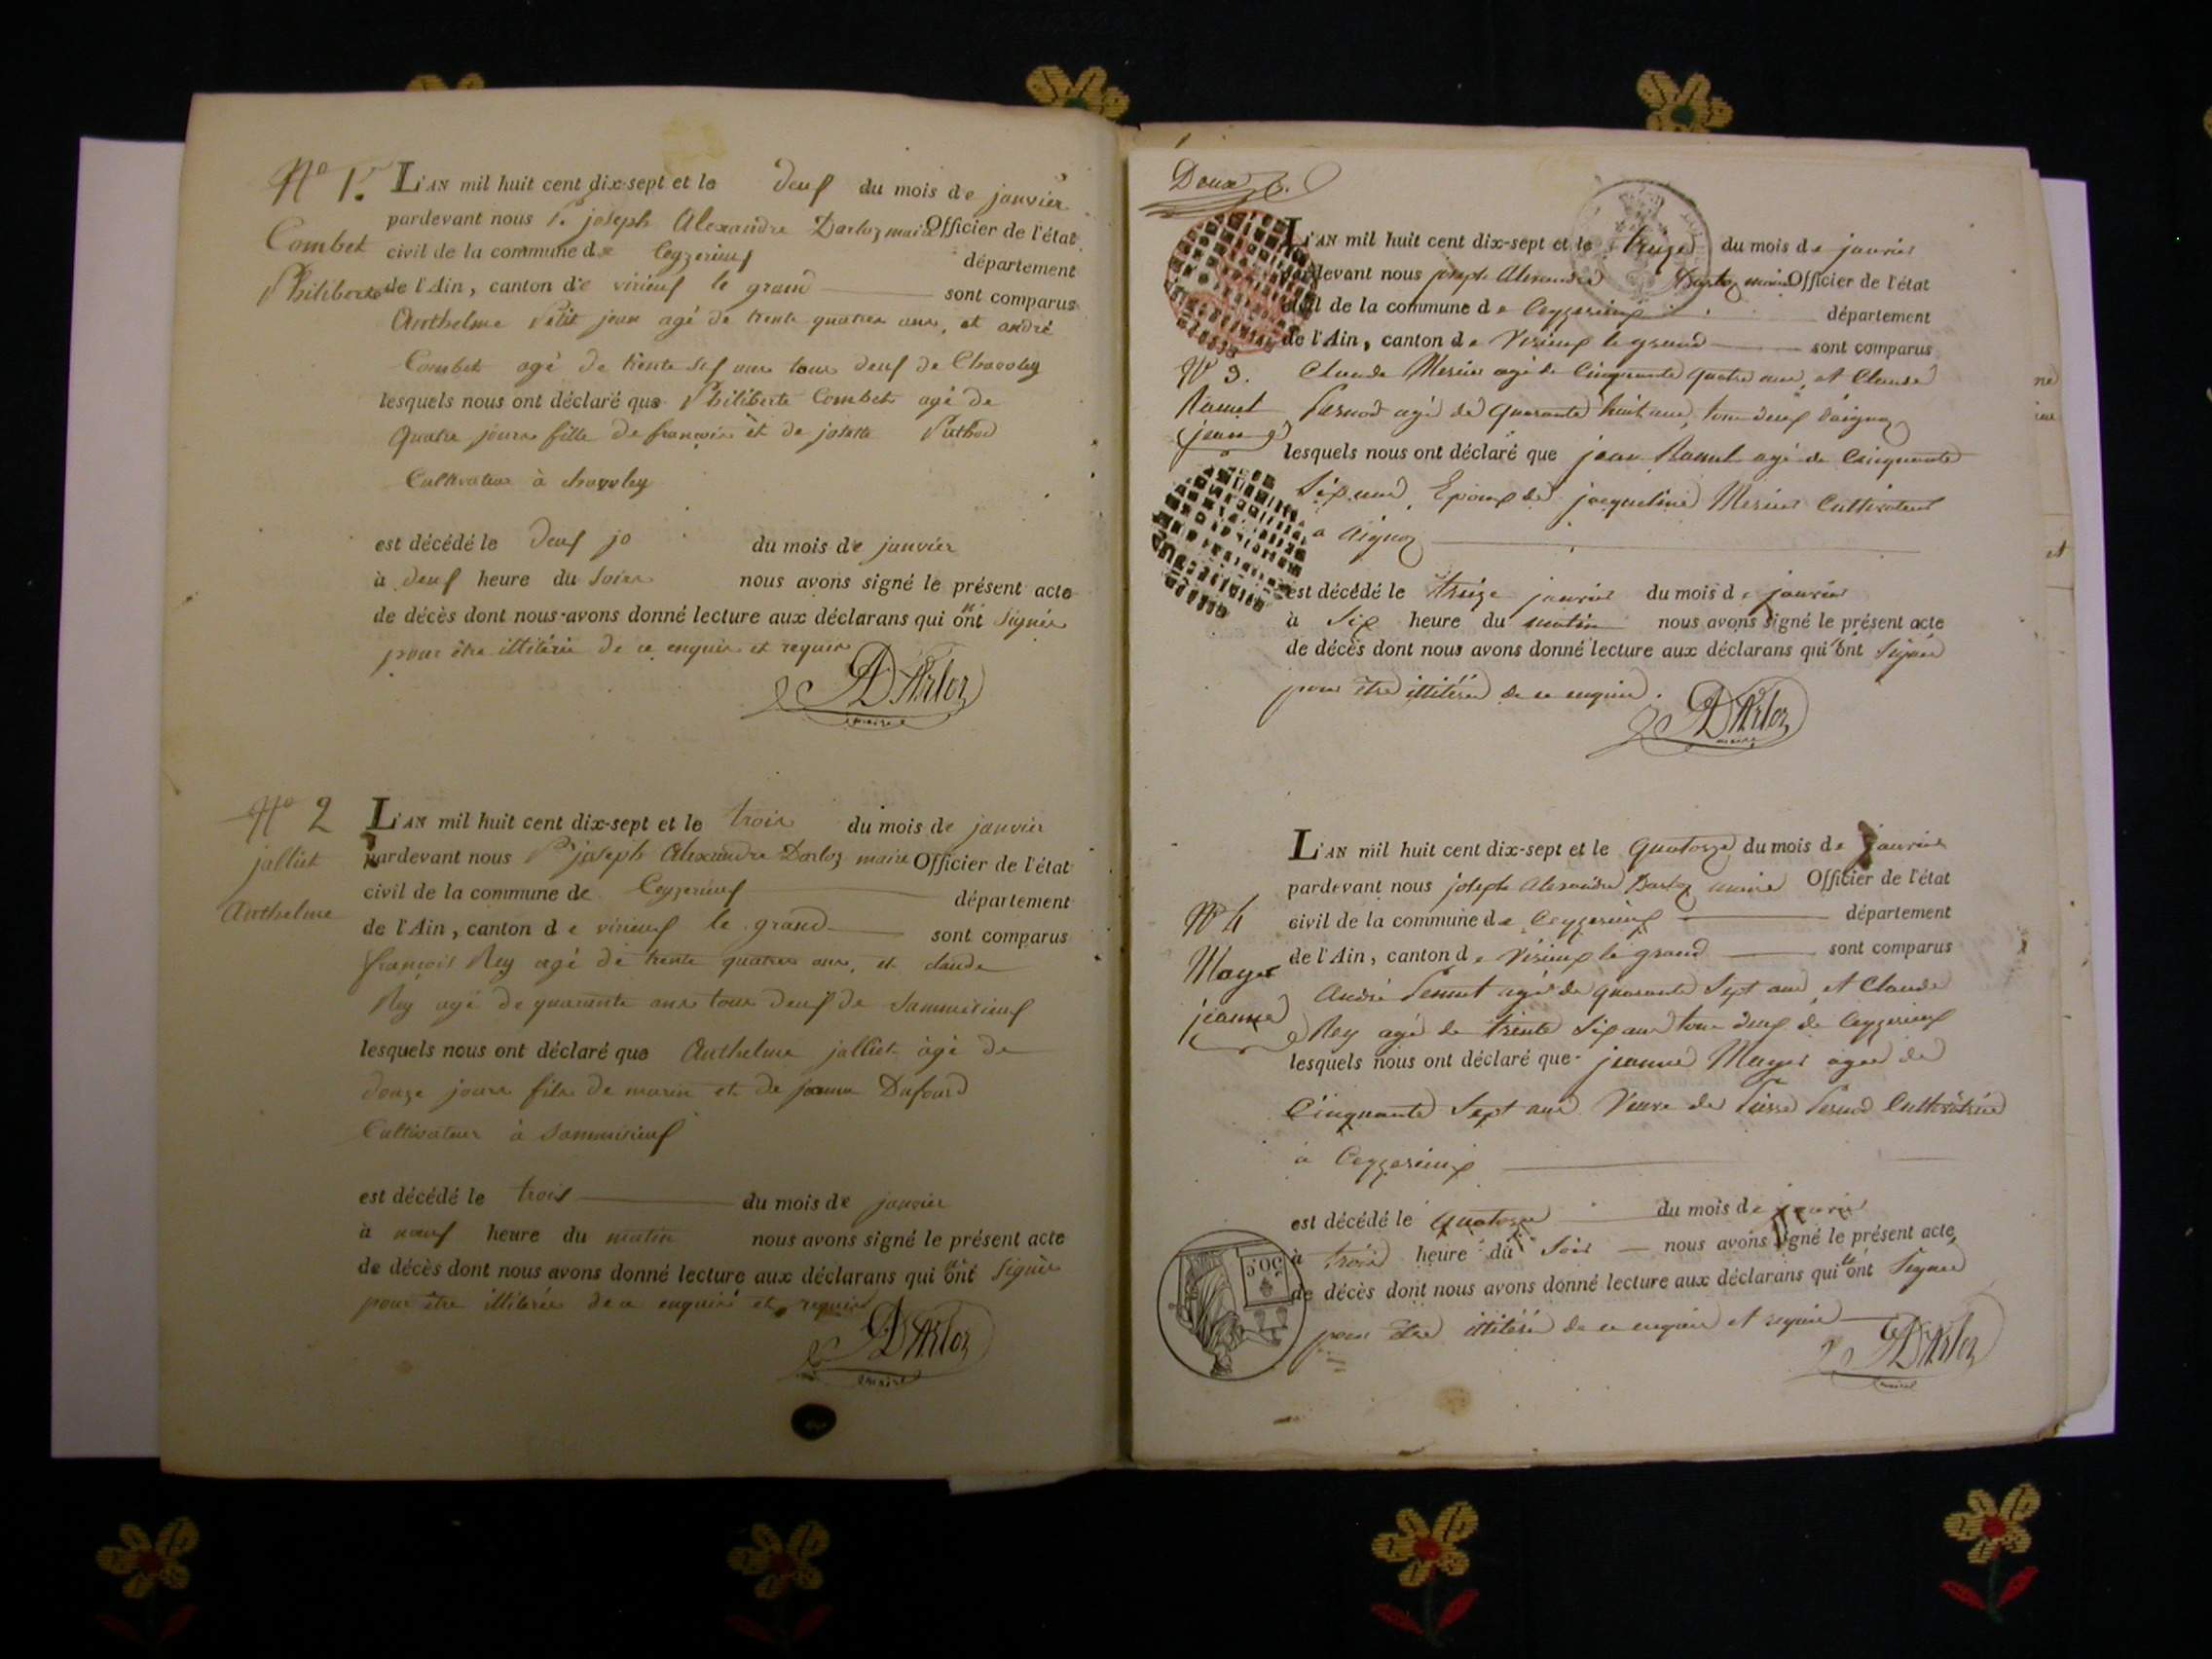 No 1.
Combet
Philiberte
L'AN mil huit cent dix-sept et le deux du mois de janvier
pardevant nous P. joseph Alexandre Darloz maire Officier de l'état
civil de la commune de Ceyzerieux département
de l'Ain, canton de virieux le grand sont comparus
Anthelme Petit jean agé de trente quatre ans, et andré
Combet agé de trente six ans tous deux de Chavoley
lesquels nous ont déclaré que Philiberte Combet agé de
quatre jours fille de françois et de josette
Cultivateur à chavoley
est décédé le deux jo du mois de janvier
à deux heure du soire nous avons signé le présent acte
de décès dont nous avons donné lecture aux déclarans qui n'ont signér
pour être illitérée de ce enquis et requis
DArloz
maire
No 2
jalliet
Anthelme
L'AN mil huit cent dix-sept et le trois du mois de janvier
pardevant nous P joseph Alexandre Darloz maire Officier de l'état
civil de la commune de Ceyzerieux département
de l'Ain, canton de virieux le grand sont comparus
françois Rey agé de trente quatre ans, et claude
Rey agé de quarante ans tous deux de
lesquels nous ont déclaré que Anthelme jalliet âgé de
douze jours fils de marin et de jeanne Dufour
Cultivateur à
est décédé le trois du mois de janvier
à neuf heure du matin nous avons signé le présent acte
de décès dont nous avons donné lecture aux déclarans qui n'ont signér
pour être illitérée de ce enquis et requis
DArloz
maire
Deux
L'AN mil huit cent dix-sept et le treize du mois de janvier
pardevant nous joseph Alexandre Darloz maire Officier de l'état
civil de la commune de Ceyzerieux département
de l'Ain, canton de Virieux le grand sont comparus
No 3.
Ramel
jean
Claude Mercier agé de Cinquante quatre ans, et Claude
Pernod agé de quarante huit ans, tous deux d'aignoz
lesquels nous ont déclaré que jean Ramel agé de Cinquante
Six ans, Epoux de jacqueline Mercier Cultivateur
a Aignoz
est décédé le treize janvier du mois de janvier
à Six heure du matin nous avons signé le présent acte
de décès dont nous avons donné lecture aux déclarans qui n'ont Signé
pour être illitéré de ce enquis.
DArloz
maire
L'AN mil huit cent dix-sept et le Quatorze du mois de janvier
pardevant nous joseph Alexandre Darloz maire Officier de l'état
civil de la commune de Ceyzerieux département
de l'Ain, canton de Virieux le grand sont comparus
No 4
Mayer
jeanne
André agé de quarante Sept ans, et Claude
Rey agé de trente Six ans tous deux de Ceyzerieux
lesquels nous ont déclaré que jeanne Mayer agée de
Cinquante Sept ans Veuve de Pierre Pernod Cultivatrice
a Ceyzerieux
est décédé le Quatorze du mois de janvier
à trois heure du Soir nous avons signé le présent acte
de décès dont nous avons donné lecture aux déclarans qui n'ont Signé
pour être illitéré de ce enquis et requis
DArloz
maire
50C